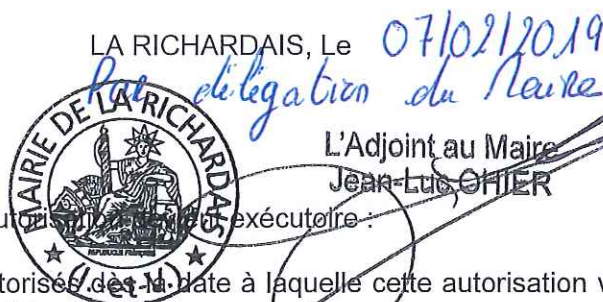 LA RICHARDAIS, Le 07/02/2019
Par délégation du Maire
L'Adjoint au Maire
Jean-Luc OHIER
MAIRIE DE LA RICHARDAIS
REPUBLIQUE FRANÇAISE
(I.-et-V.)
exécutoire :
dès la date à laquelle cette autorisation v